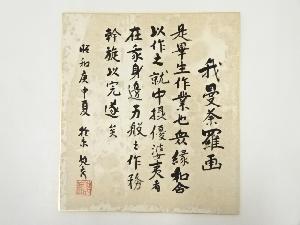 我曼荼羅画
是畢生作業也衆縁和合
以作之就中摂優婆夷者
在我身邊万般之作務
幹旋以完遂矣
昭和庚申夏